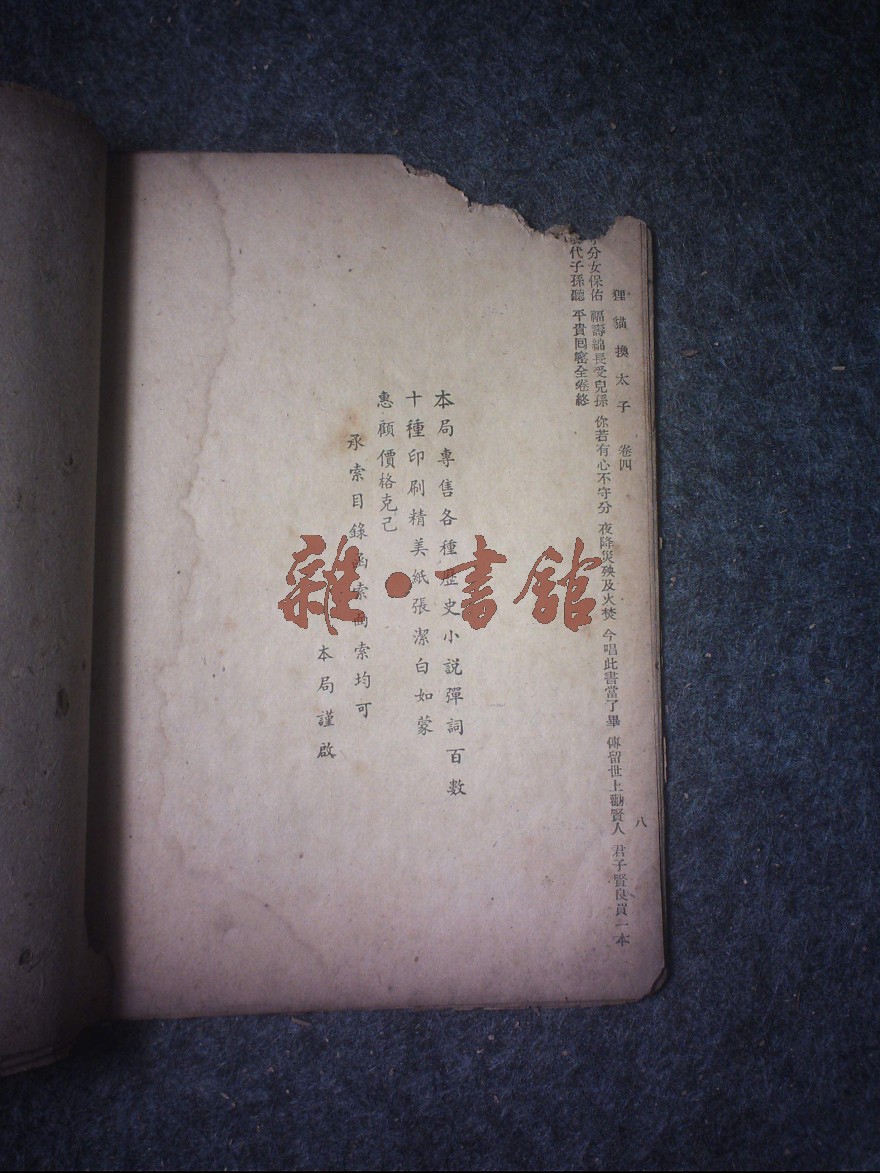 狸貓換太子 卷四 八
分女保佑 福壽綿長受兒孫 你若有心不守分 夜降災殃及火焚 今唱此書當了畢 傳留世上勸賢人 君子賢良買一本
代子孫聽 平貴回窰全卷終
本局專售各種歷史小說彈詞百數
十種印刷精美紙張潔白如蒙
惠顧價格克己
承索目錄函索面索均可
本局謹啟
雜·書館